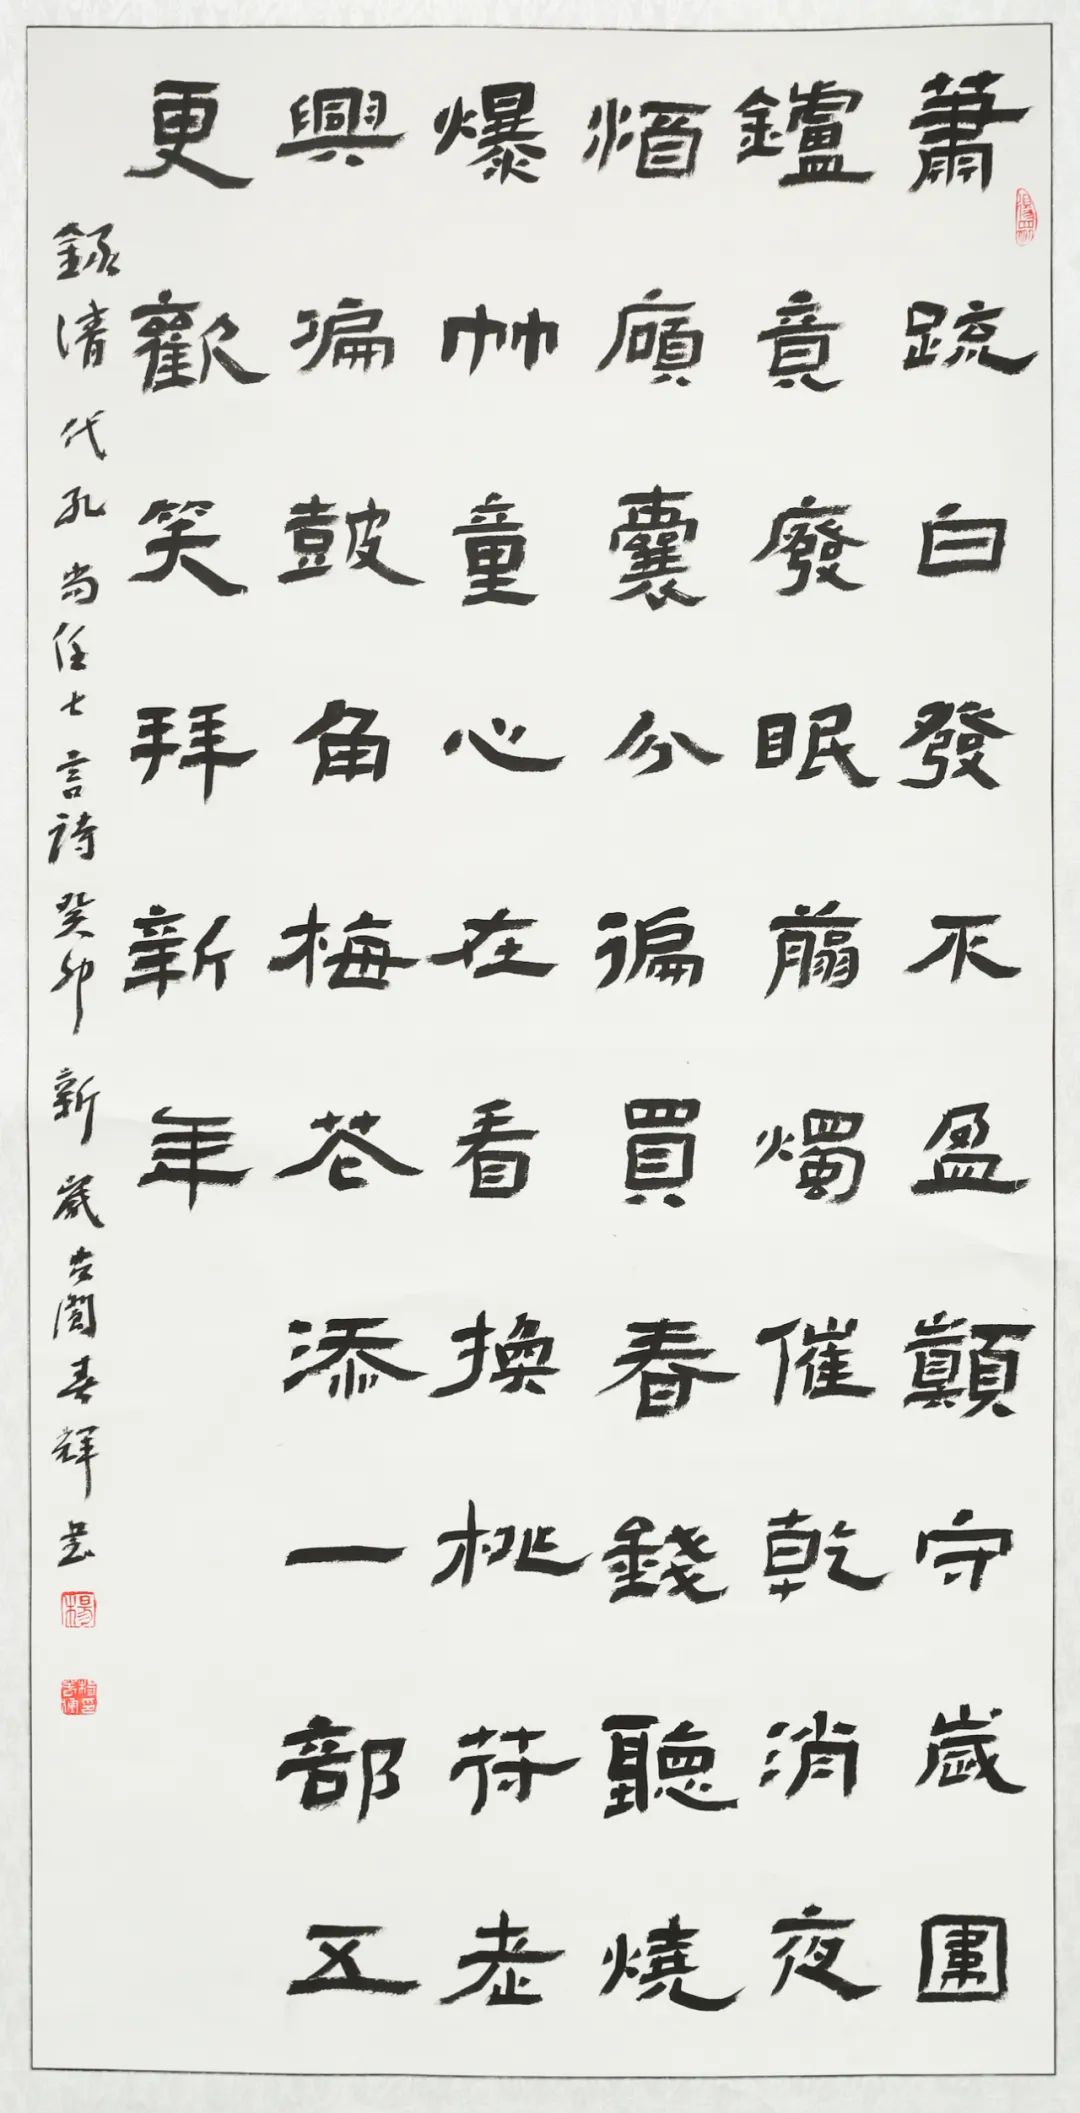 蕭疏白發不盈顛守歲圍
鑪竟廢眠翦燭催乾消夜
酒傾囊分徧買春錢聽燒
爆竹童心在看換桃符老
興偏鼓角梅花添一部五
更歡笑拜新年
錄清代孔尚任七言詩癸卯新歲古閩春輝書
楊